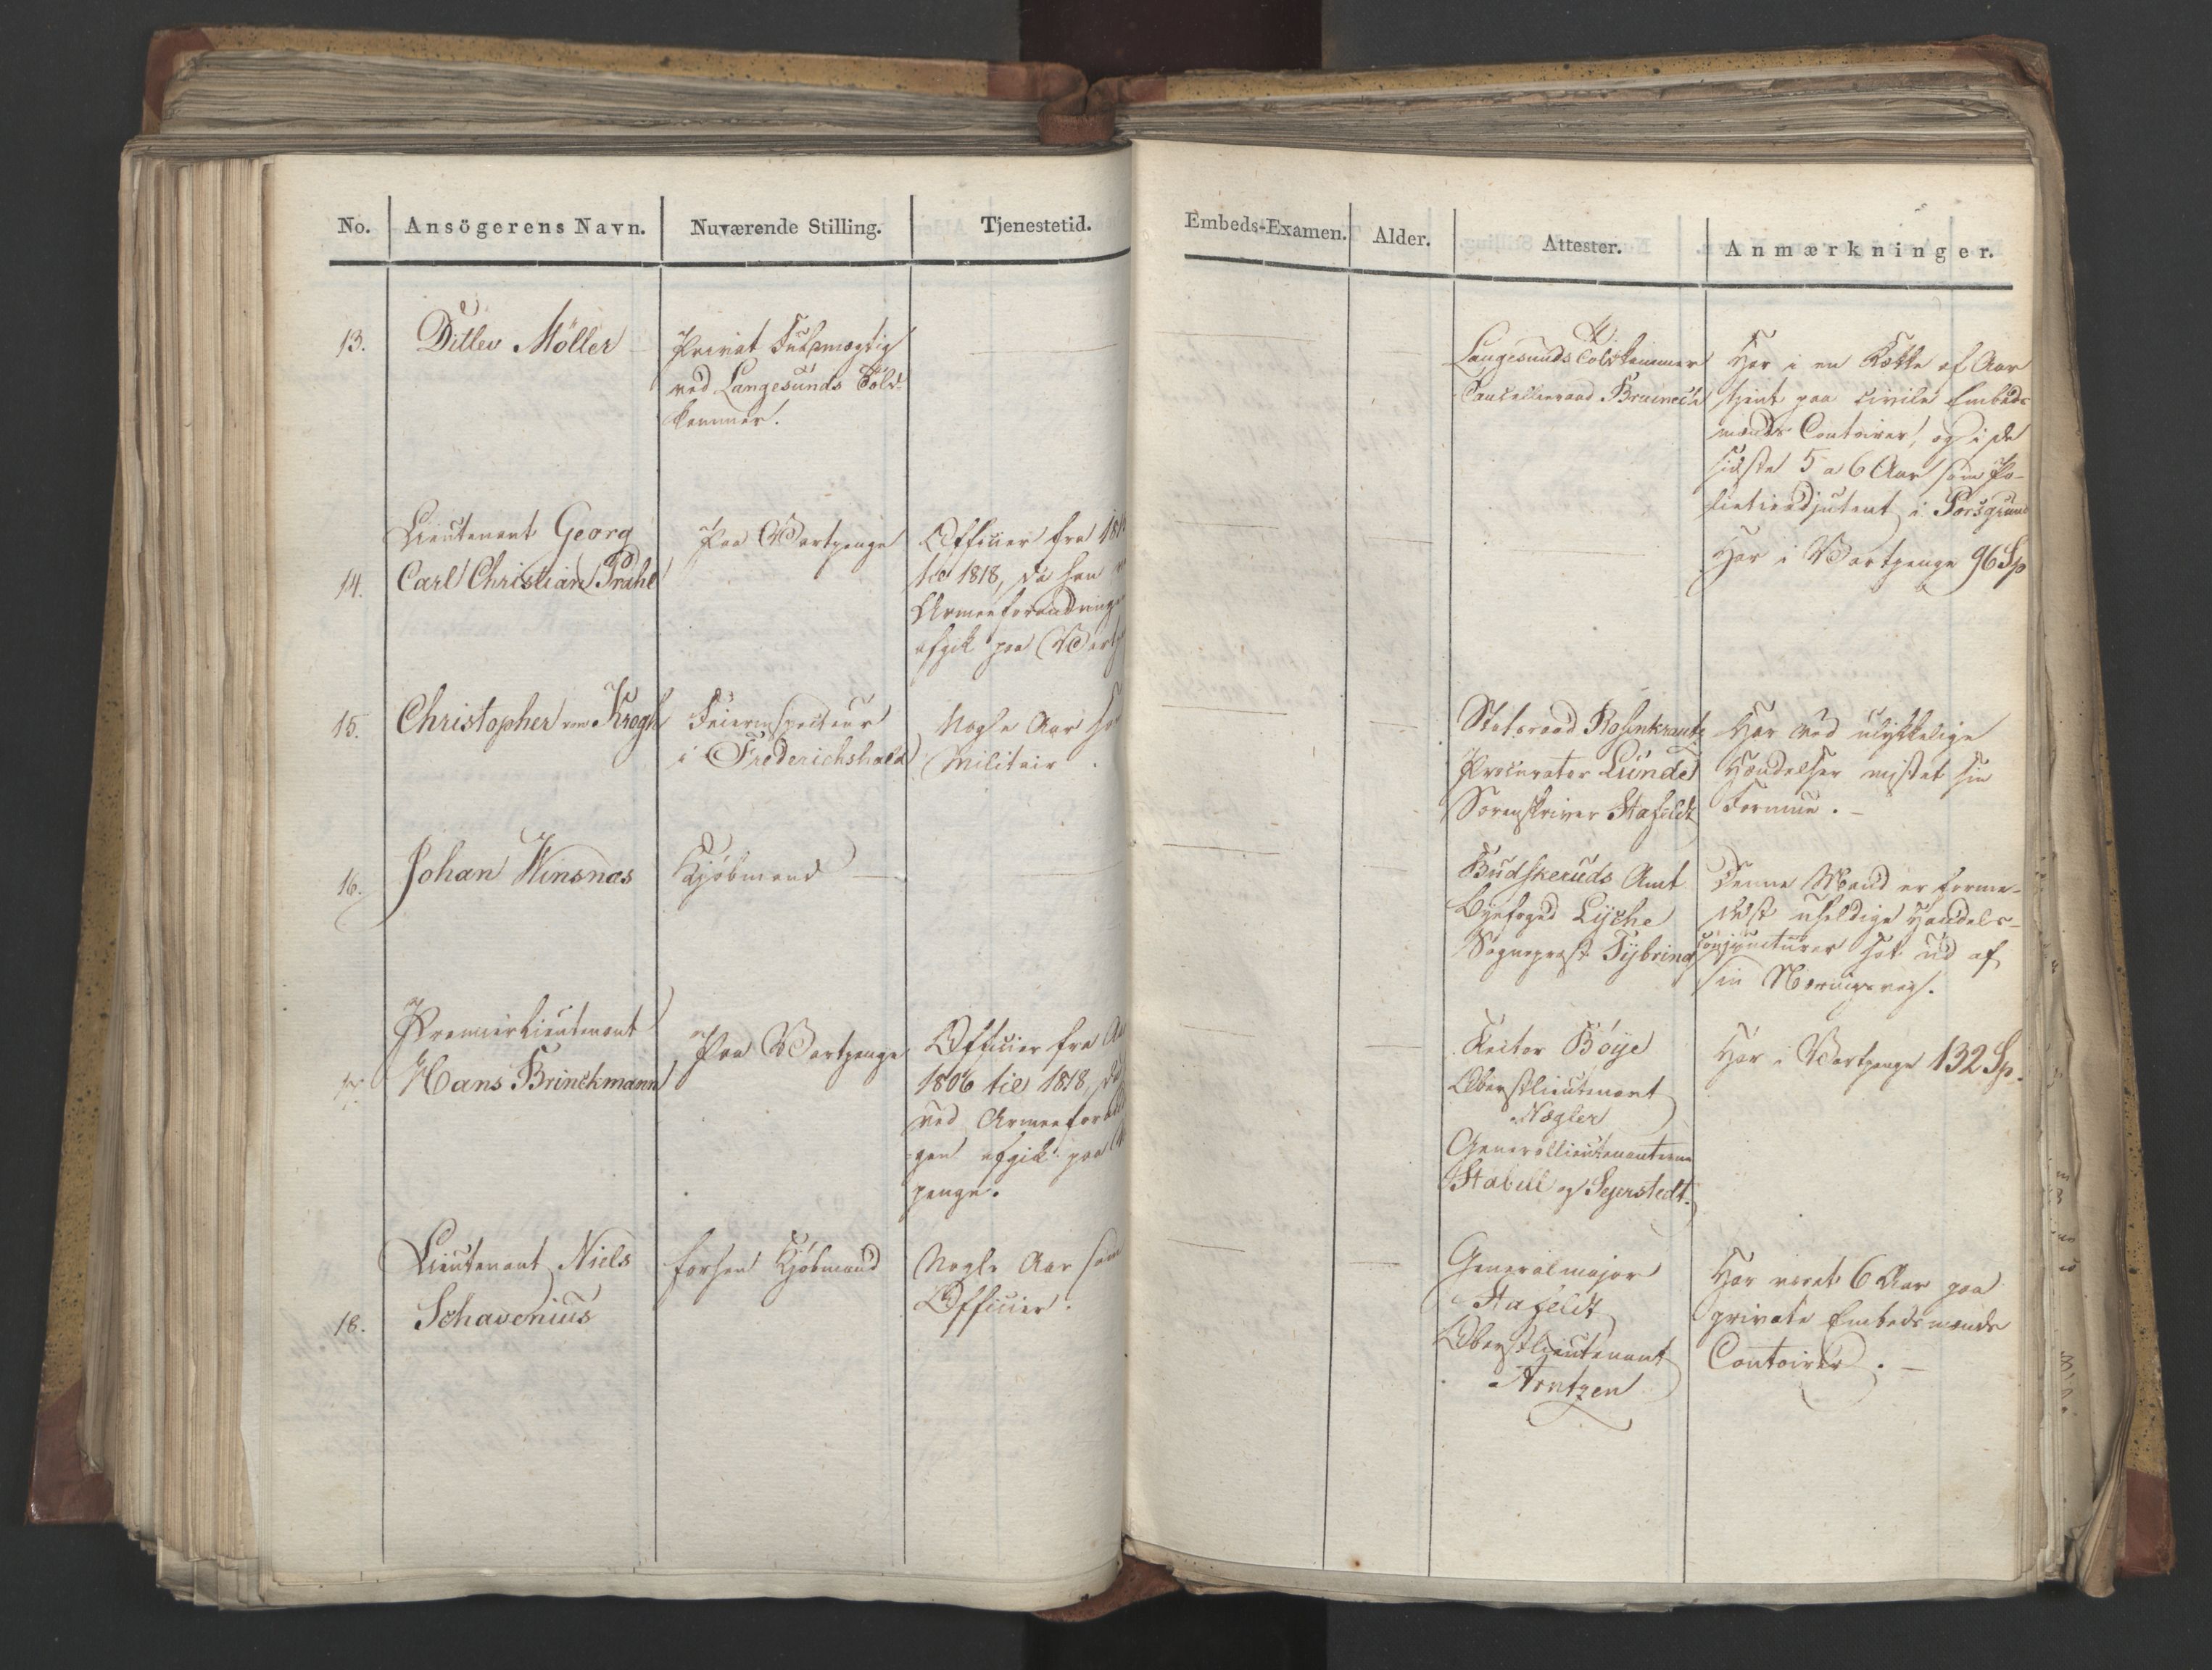 No.
Ansögerens Navn.
Nuværende Stilling.
Tjenestetid.
Embeds-Examen.
Alder.
Attester.
Anmærkninger.
13.
Ditlev Möller
Privat Fuldmægtig
ved Langesunds Told-
kammer.
Langesunds Toldkammer
Cancelleeraad
Har i en Række af Aar
tjent paa civile Embeds
mænds Contoirer, og i de
sidste 5 a 6 Aar som Po-
litieadjutant i Porsgrund
14.
Lieutenant Georg
Carl Christian Prahl
Paa Vartpenge
Officier fra
til 1818, da han
Armeeforandringen
afgik paa
Har i Vartpenge 96 Sp
15.
Christopher von Krogh
Veierinspecteur
i Frederichshald
Nogle Aar
Militair.
Statsraad Rosenkrantz
Procurator Lunde
Sorenskriver Stafeldt
Har ved ulykkelige
Hændelser mistet sin
Formue. -
16.
Johan Winsnas
Kjöbmand
Budskeruds Amt
Byefoged Lyche
Sognepræst Tybring
Denne Mand er forme-
delst uheldige Handels-
conjuncturer sat ud af
sin Næringsvej.
17.
Premierlieutenant
Hans Brinckmann
Paa Vartpenge
Officier fra
1806 til 1818, da
ved
gen afgik paa
penge.
Rector Böye
Oberstlieutenant
Nægler
Generallieutenanterne
Stabell og Sejerstedt.
Har i Vartpenge 132 Sp.
18.
Lieutenant Niels
Schavenius
forhen Kjöbmand
Nogle Aar som
Officier.
Generalmajor
Stafeldt
Oberstlieutenant
Arntzen
Har været 6 Aar paa
private Embedsmænds
Contoirer. -